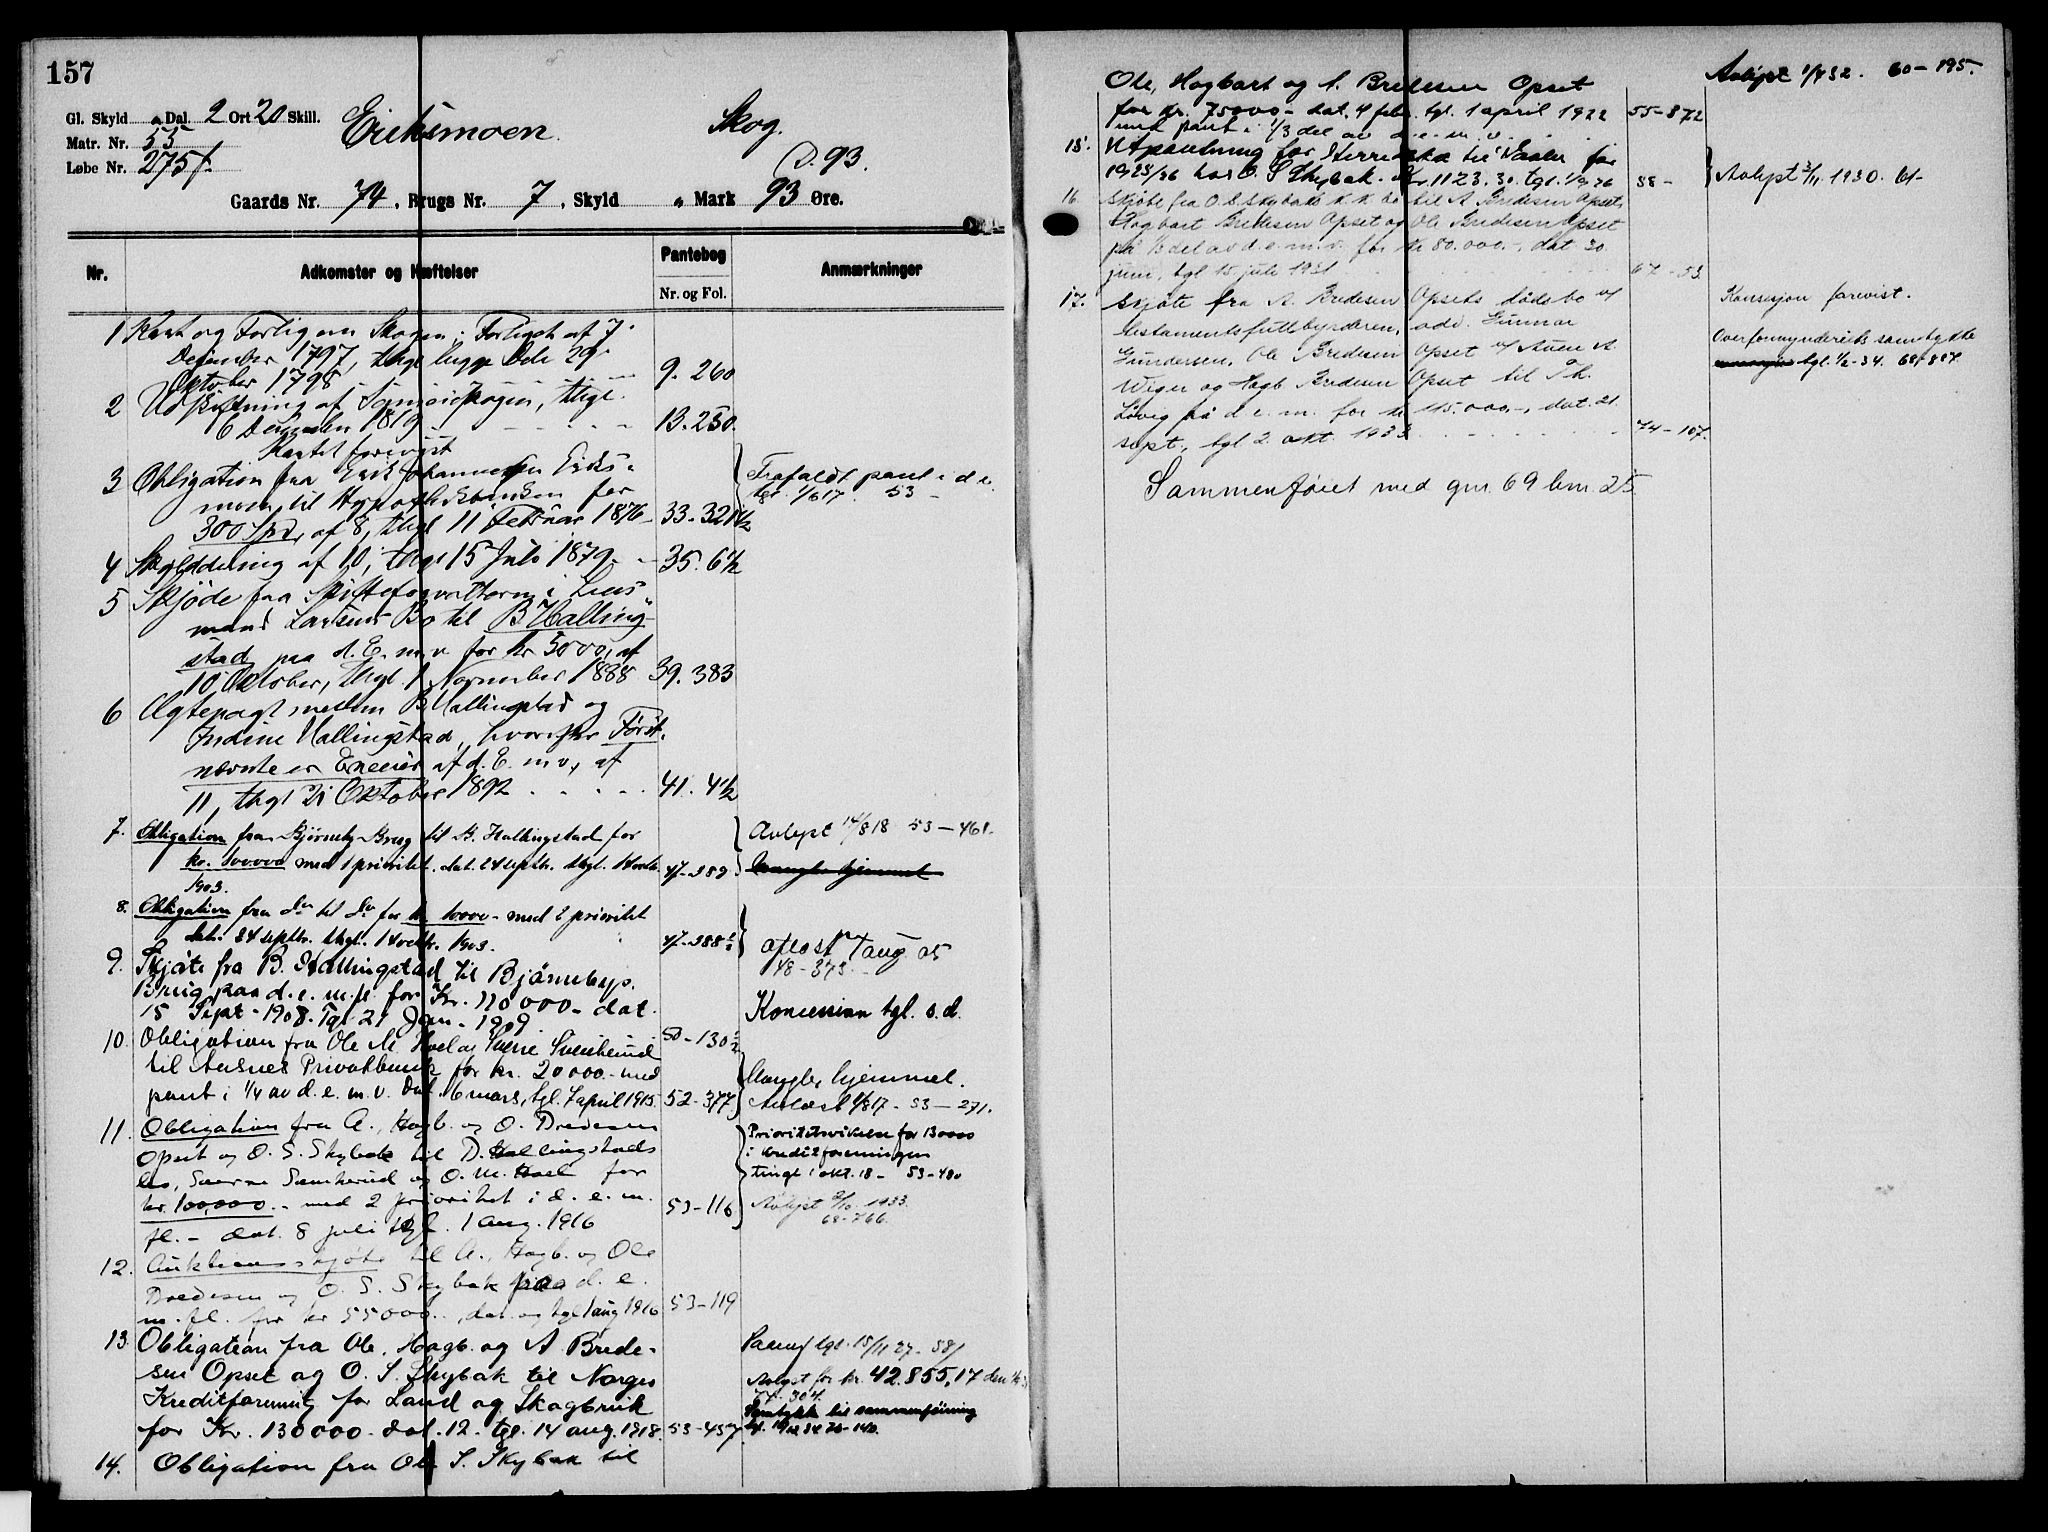 157
Gl. Skyld „ Dal. 2 Ort 20 Skill.
Matr. Nr. 55
Løbe Nr. 275f.
Eriksmoen. Skog.
D. 93.
Gaards Nr. 74, Brugs Nr. 7, Skyld „ Mark 93 Øre.
Nr. Adkomster og Hæftelser Pantebog Nr. og Fol. Anmærkninger
1 Kart og Forlig om Skogen i Forliget af 7.
December 1797, thgl. 29.
Oktober 1798 9. 260
2 Udskiftning af Sameieskogen, thgl.
6 December 1819 13. 250.
Kartet forevist
3 Obligation fra Erik Johannesen Eriks-
moen, til Hypothekbanken for
300 Spd., af 8, thgl 11 Februar 1876 33. 321½
Frafaldt pant i d. e.
tgl. 1/6 17. 53 -
4 Skylddeling af 10, thgl 15 Juli 1879 35. 6½
5 Skjøde fra Skifteforvalteren i Lens-
mand Larsens Bo til B Halling-
stad paa d. E. m. v for kr 5000, af
10 Oktober, thgl. 1 November 1888 39. 383
6 Ægtepagt mellem B Hallingstad og
Indine Hallingstad, hvorefter Først-
nævnte er Eneeier af d. E. m v, af
11, thgl 21 Oktober 1892 41. 4½
7. Obligation fra Bjørneby Brug til B. Hallingstad for
kr. 100.000 med 1 prioritet. dat. 24 septbr. thgl. 14 octb.
1903. 47-289
Avlyst 14/8 18 53-461.
Mangler hjemmel
8. Obligation fra do til do for kr. 10.000 - med 2 prioritet
dat. 24 septbr. thgl. 14 octbr. 1903. 47-288½
avløst 7 aug 05
48-373.
9. Skjøte fra B. Hallingstad til Bjørneby
Brug paa d. e. m. fl. for Kr. 110 000 - dat.
15 Sept - 1908. Tgl. 21 Jan - 1909. 50-130½
Koncession tgl. s. d.
10. Obligation fra Ole M. Hoel og Sverre Svenkerud
til Aasnes Privatbank for kr. 20 000.- med
pant i 1/4 av d. e. m. v. Dat. 6 mars, tgl. 7 april 1915. 52-377
Mangler hjemmel.
Avløst 1/8 17 - 53-271.
11. Obligation fra A., Hagb. og O. Bredesen
Opset og O. S. Skybak til D. Hallingstads
bo, Sverre Svenkerud og O. M. Hoel for
kr. 100,000.- med 2 prioritet i d. e. m.
fl. - dat. 8 juli tgl. 1 aug. 1916 53-116
Prioritetsvikelse for 130000
i kreditforeningen
tingl 1 okt. 18 - 53-480
Avlyst 2/10 1933.
68-766.
12. Auktionsskjøte til A., Hagb. og Ole
Bredesen og O. S. Skybak paa d. e.
m. fl. for kr 55000.. dat. og tgl 1 aug 1916 53-119
13. Obligation fra Ole, Hagb. og A. Brede-
sen Opset og O. S. Skybak til Norges
Kreditforening for Land og Skogbruk
for Kr. 130000. dat. 12. tgl. 14 aug. 1918. 53-457
tgl. 15/11 27 - 58/
Avlyst for kr. 42.855,17 den
74. 304.
Samtykke til sammenføining
14. Obligation fra Ole S. Skybak til
Ole, Hagbart og A. Bredesen Opset
for Kr. 75000 - dat. 4 febr. tgl. 1 april 1922 55-872
med pant i 1/3 del av d. e. m. v.
Avlyst 1/8 32. 60-195.
15. Utpantning for Herredska til Vaaler for
1925/26 hos O. S Skybak. Kr. 1123.30. tgl. 1/9 26 58-
Avlyst 3/11 1930. 61-
16. Skjøte fra O. S. Skybaks k. k. bo til A Bredesen Opset,
Hagbart Bredesen Opset og Ole Bredesen Opset
på 1/3 del av d. e. m. v. for kr 80.000.-, dat 30
juni, tgl 15 juli 1931 67-53.
17. Skjøte fra A Bredesen Opsets dødsbo v/
testamentsfullbyrderen, adv. Gunnar
Gundersen, Ole Bredesen Opset v/ A.
Wiger og Hagb Bredesen Opset til Th.
Løvig på d. e. m. for kr 115.000.-, dat. 21
sept., tgl 2. okt. 1933 74-107.
Konsesjon forevist.
Overformynderiets samtykke
tgl. 1/2-34. 68-884.
Sammenføiet med gnr. 69 bnr. 25.